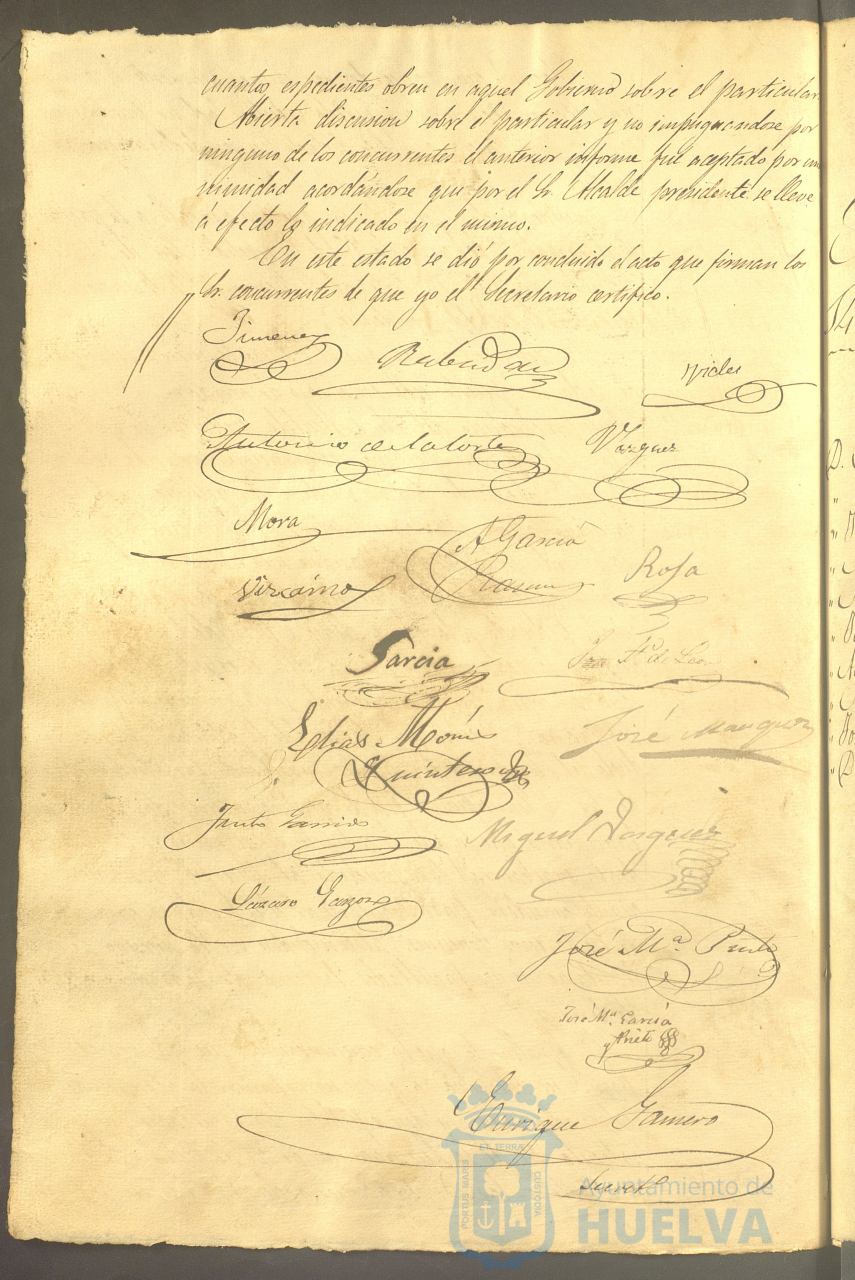 cuantos espedientes obren en aquel Gobierno sobre el particular.
Abierta discusion sobre el particular y no impugnandose por
ninguno de los concurrentes el anterior informe fué aceptado por una
nimidad acordándose que por el Sr. Alcalde presidente se lleve
á efecto lo indicado en el mismo.
En este estado se dió por concluido el acto que firman los
Sr. concurrentes de que yo el Secretario certifico.
Jimenez
Vides
Antonio de la Corte
Vazquez
Mora
A Garcia
Vizcaino
Rosa
Garcia
F. de Leon
Elias Moris
José Marquez
Quintero
Justo Garrido
Miguel Vazquez
Lázaro Garzon
José Mª. Prieto
José Mª. García
y Prieto
Enrique Gamero
Secret
ET TERRÆ
PORTUS MARIS
CUSTODIA
Ayuntamiento de
HUELVA